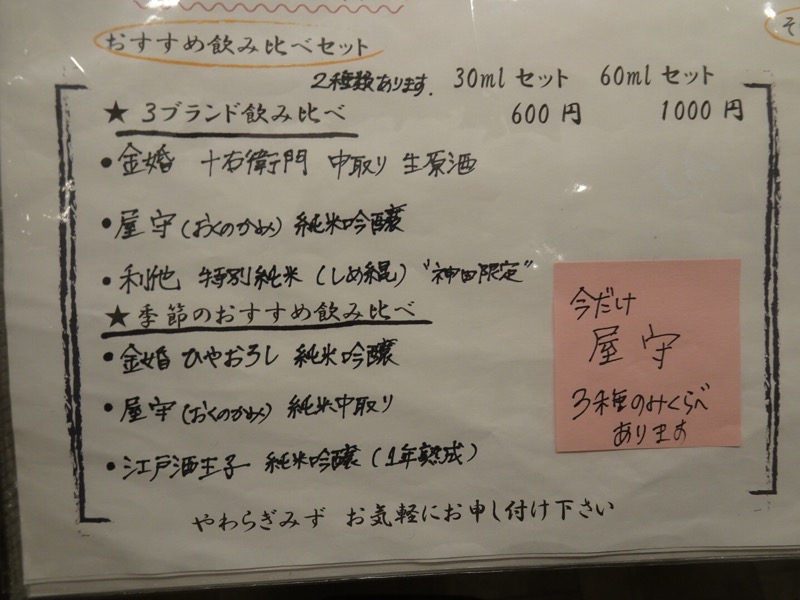 おすすめ飲み比べセット
2種類あります. 30mlセット 60mlセット
★ 3ブランド飲み比べ 600円 1000円
•金婚 十右衛門 中取り 生原酒
•屋守(おくのかみ) 純米吟醸
•利他 特別純米 (しめ縄) "神田限定"
★ 季節のおすすめ飲み比べ
•金婚 ひやおろし 純米吟醸
•屋守(おくのかみ) 純米中取り
•江戸酒王子 純米吟醸 (1年熟成)
今だけ
屋守
3種のみくらべ
あります
やわらぎみず お気軽にお申し付け下さい